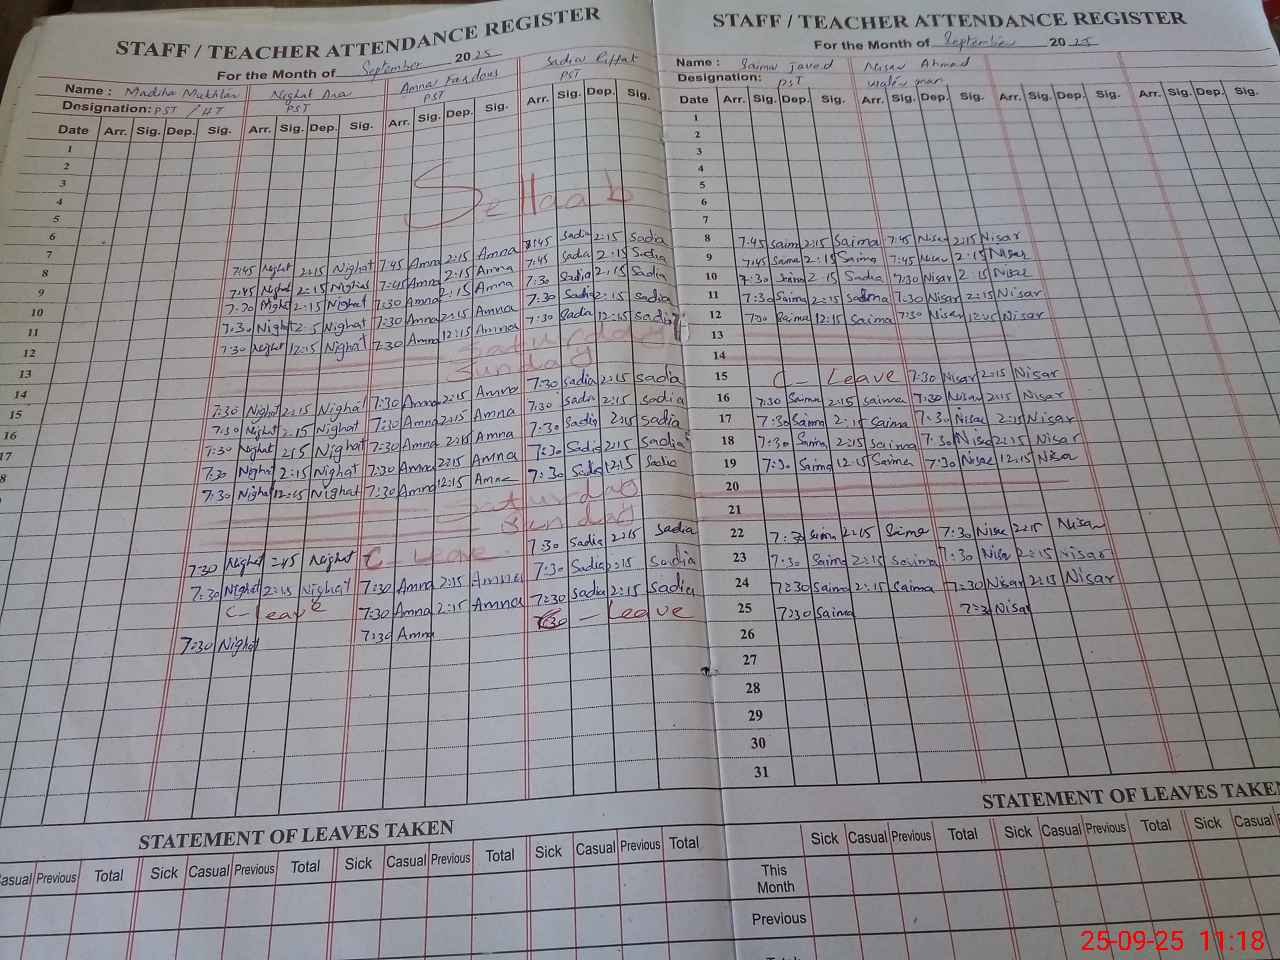 STAFF / TEACHER ATTENDANCE REGISTER
For the Month of September 2025
Name : Madiha Mukhtar Nighat Ara Amna Fardous Sadia Riffat
Designation: PST / HT PST PST PST
Date Arr. Sig. Dep. Sig. Arr. Sig. Dep. Sig. Arr. Sig. Dep. Sig. Arr. Sig. Dep. Sig.
1
2
3
4
5
6
7
8 7:45 Nighat 2:15 Nighat 7:45 Amna 2:15 Amna 7:45 Sadia 2:15 Sadia
9 7:45 Nighat 2:15 Nighat 7:45 Amna 2:15 Amna 7:45 Sadia 2:15 Sadia
10 7:30 Nighat 2:15 Nighat 7:30 Amna 2:15 Amna 7:30 Sadia 2:15 Sadia
11 7:30 Nighat 2:15 Nighat 7:30 Amna 2:15 Amna 7:30 Sadia 2:15 Sadia
12 7:30 Nighat 12:15 Nighat 7:30 Amna 12:15 Amna 7:30 Sadia 12:15 Sadia
13 Saturday
14 Sunday
15 7:30 Nighat 2:15 Nighat 7:30 Amna 2:15 Amna 7:30 Sadia 2:15 Sadia
16 7:30 Nighat 2:15 Nighat 7:30 Amna 2:15 Amna 7:30 Sadia 2:15 Sadia
17 7:30 Nighat 2:15 Nighat 7:30 Amna 2:15 Amna 7:30 Sadia 2:15 Sadia
8 7:30 Nighat 2:15 Nighat 7:30 Amna 2:15 Amna 7:30 Sadia 2:15 Sadia
7:30 Nighat 12:15 Nighat 7:30 Amna 12:15 Amna 7:30 Sadia 12:15 Sadia
Saturday
Sunday
7:30 Nighat 2:45 Nighat C - Leave 7:30 Sadia 2:15 Sadia
7:30 Nighat 2:15 Nighat 7:30 Amna 2:15 Amna 7:30 Sadia 2:15 Sadia
C - Leave 7:30 Amna 2:15 Amna 7:30 Sadia 2:15 Sadia
7:30 Nighat 7:30 Amna - Leave
STATEMENT OF LEAVES TAKEN
Casual Previous Total Sick Casual Previous Total Sick Casual Previous Total Sick Casual Previous Total
STAFF / TEACHER ATTENDANCE REGISTER
For the Month of September 2025
Name : Saima javed Nisar Ahmad
Designation: PST
Date Arr. Sig. Dep. Sig. Arr. Sig. Dep. Sig. Arr. Sig. Dep. Sig. Arr. Sig. Dep. Sig.
1
2
3
4
5
6
7
8 7:45 Saima 2:15 Saima 7:45 Nisar 2:15 Nisar
9 7:45 Saima 2:15 Saima 7:45 Nisar 2:15 Nisar
10 7:30 Saima 2:15 Sadia 7:30 Nisar 2:15 Nisar
11 7:30 Saima 2:15 Saima 7:30 Nisar 2:15 Nisar
12 7:30 Saima 12:15 Saima 7:30 Nisar 12:15 Nisar
13
14
15 C - Leave 7:30 Nisar 2:15 Nisar
16 7:30 Saima 2:15 Saima 7:30 Nisar 2:15 Nisar
17 7:30 Saima 2:15 Saima 7:30 Nisar 2:15 Nisar
18 7:30 Saima 2:15 Saima 7:30 Nisar 2:15 Nisar
19 7:30 Saima 12:15 Saima 7:30 Nisar 12:15 Nisar
20
21
22 7:30 Saima 2:15 Saima 7:30 Nisar 2:15 Nisar
23 7:30 Saima 2:15 Saima 7:30 Nisar 2:15 Nisar
24 7:30 Saima 2:15 Saima 7:30 Nisar 2:15 Nisar
25 7:30 Saima 7:3 Nisar
26
27
28
29
30
31
STATEMENT OF LEAVES TAKEN
Sick Casual Previous Total Sick Casual Previous Total Sick Casual
This Month
Previous
25-09-25 11:18